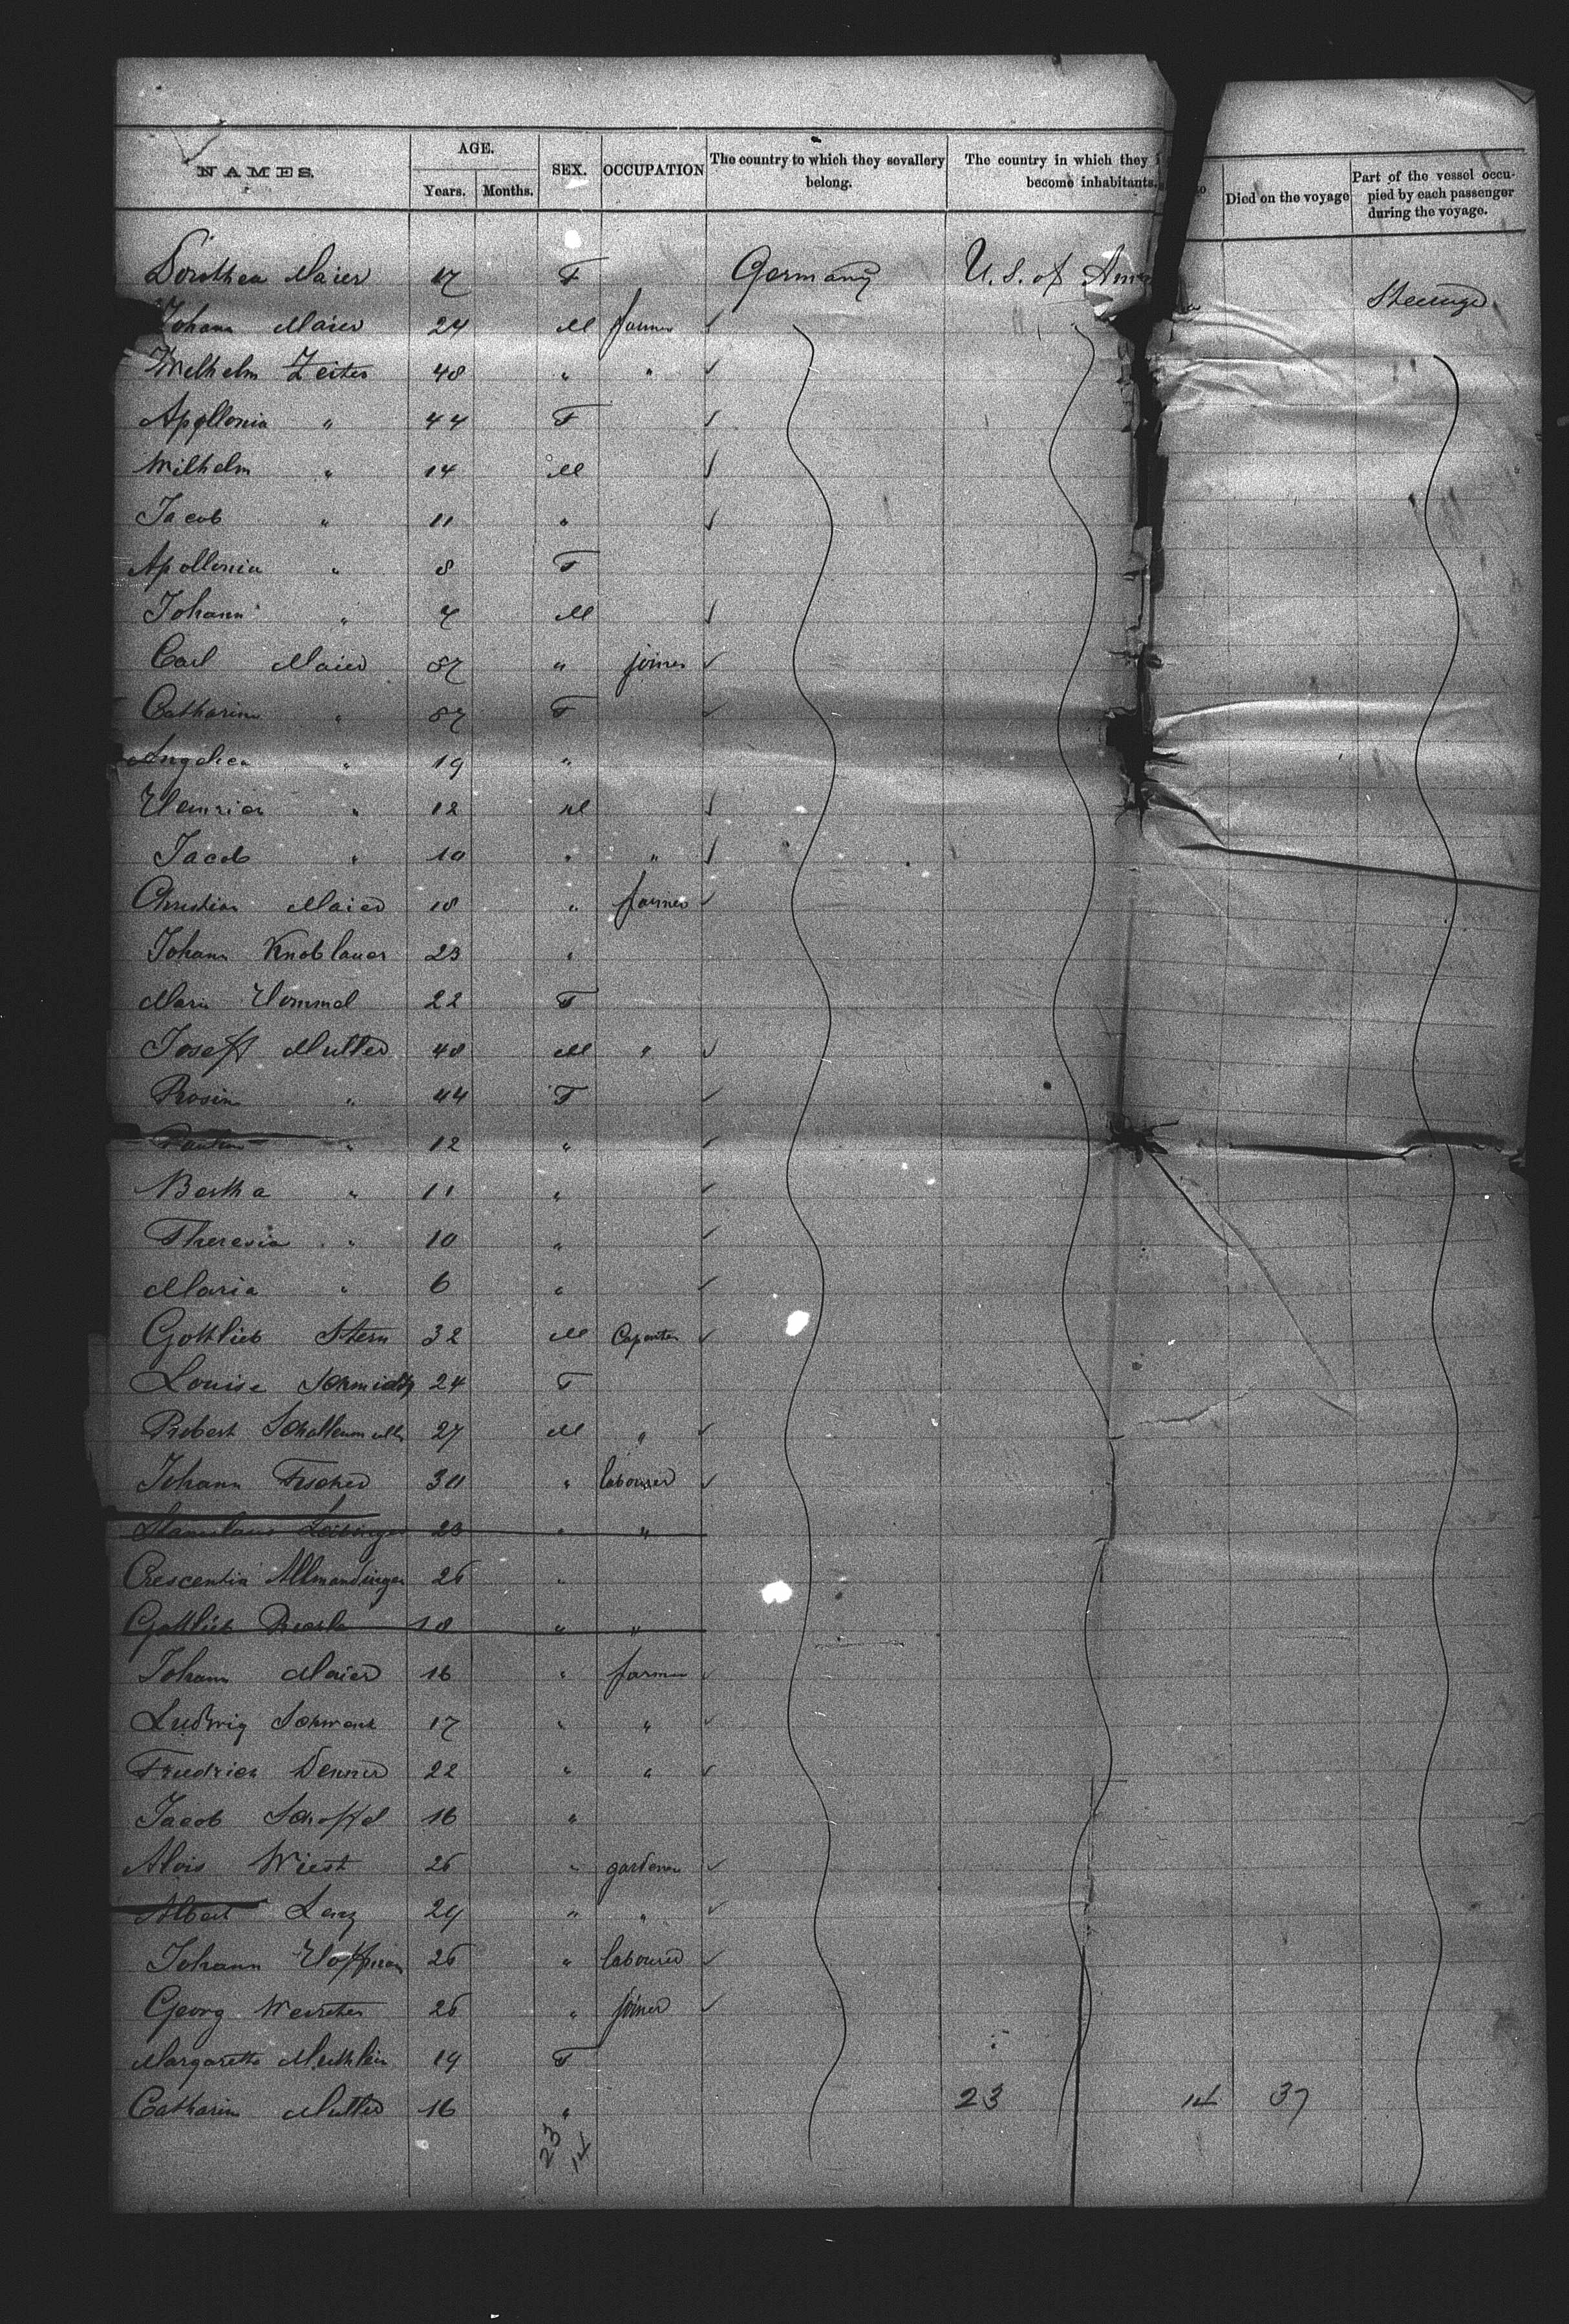 NAMES. AGE. SEX. OCCUPATION The country to which they sevallery belong. The country in which they become inhabitants. Died on the voyage Part of the vessel occupied by each passenger during the voyage.
Years. Months.
Dorothea Maier 17 F Germany U. S. of Steerage
Johann Maier 24 M farmer
Wilhelm Zeiter 48 " "
Apollonia " 44 F
Wilhelm " 14 M
Jacob " 11 "
Apollonia " 8 F
Johann " 7 M
Carl Maier 37 " joiner
Catharina " 37 F
Angelica " 19 "
Heinrich " 12 M
Jacob " 10 " "
Christian Maier 18 " farmer
Johann Knoblauch 23 "
Marie Hommel 22 F
Joseff Muller 48 M "
Rosina " 44 F
" 12 "
Bertha " 11 "
Theresia " 10 "
Maria " 6 "
Gottlieb Stern 32 M Capenter
Louise Schmidt 24 F
Robert 27 M "
Johann Fischer 30 " labourer
23 " "
Crescentia Allmandinger 26 "
Gottlieb 18 " "
Johann Maier 16 " farmer
Ludwig Schwenk 17 " "
Friedrich Denner 22 " "
Jacob 16 "
Alois Wiest 26 " gardener
Albert Lenz 24 " "
Johann Hoffman 26 " labourer
Georg 26 " joiner
Margaretha 19 F
Catharin Muller 16 " 23 14 37
23 14